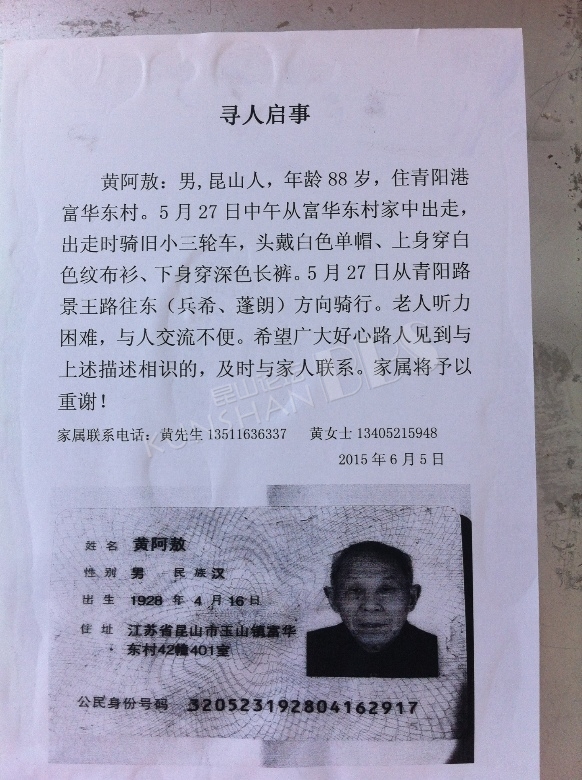 寻人启事
黄阿敖：男,昆山人，年龄 88 岁，住青阳港
富华东村。5 月 27 日中午从富华东村家中出走，
出走时骑旧小三轮车，头戴白色单帽、上身穿白
色纹布衫、下身穿深色长裤。5 月 27 日从青阳路
景王路往东（兵希、蓬朗）方向骑行。老人听力
困难，与人交流不便。希望广大好心路人见到与
上述描述相识的，及时与家人联系。家属将予以
重谢！
家属联系电话：黄先生 13511636337 黄女士 13405215948
2015 年 6 月 5 日
昆山论坛 BBS
KUNSHAN
姓 名 黄阿敖
性 别 男 民 族 汉
出 生 1928 年 4 月 16 日
住 址 江苏省昆山市玉山镇富华
东村42幢401室
公民身份号码 320523192804162917